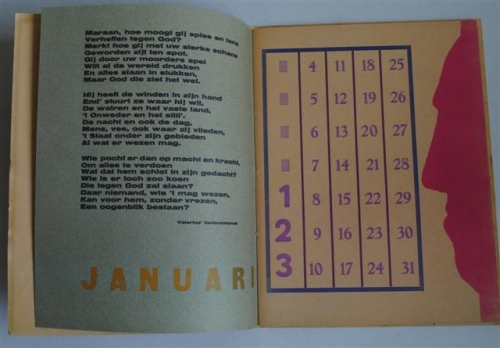 Maraan, hoe moogt gij spies en lans
Verheffen tegen God?
Merkt hoe gij met uw sterke schans
Geworden zijt ten spot.
Gij door uw moorders spel
Wilt al de wereld drukken
En alles slaan in stukken,
Maar God die ziet het wel.
Hij heeft de winden in zijn hand
End' stuurt ze waar hij wil,
De watren en het vaste land,
't Onweder en het still'.
De nacht en ook de dag,
Mens, vee, ook waar zij vlieden,
't Staat onder zijn gebieden
Al wat er wezen mag.
Wie pocht er dan op macht en kracht,
Om alles te verdoen
Wat dat hem schiet in zijn gedacht?
Wie is er toch zoo koen
Die tegen God zal slaan?
Daar niemand, wie 't mag wezen,
Kan voor hem, zonder vrezen,
Een oogenblik bestaan?
Valerius' Gedenckklanck
JANUARI
4 11 18 25
5 12 19 26
6 13 20 27
7 14 21 28
1 8 15 22 29
2 9 16 23 30
3 10 17 24 31